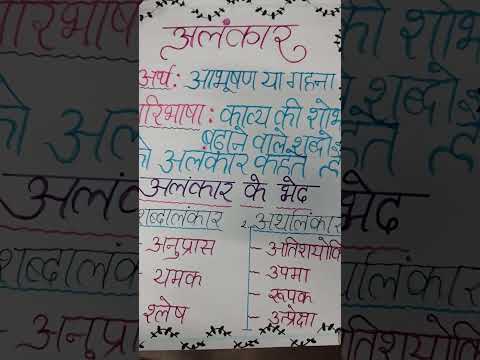 अलंकार
अर्थ : आभूषण या गहना
रिभाषा : काव्य की शोभ
बढ़ाने वाले शब्दो
को अलंकार कहते है
अलंकार के भेद
शब्दालंकार
- अनुप्रास
- यमक
- श्लेष
2. अर्थालंकार
- अतिशयोक्ति
- उपमा
- रूपक
- उत्प्रेक्षा